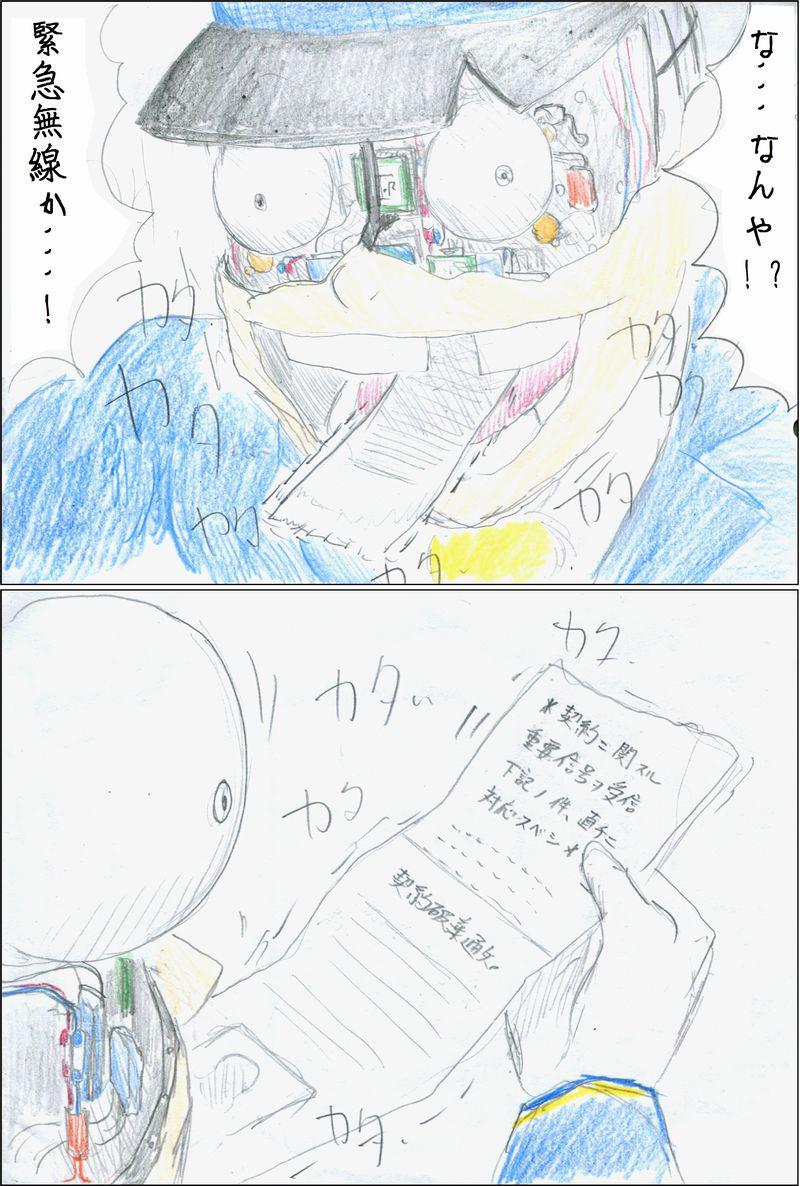 な・・・なんや！？
緊急無線か・・・！
カタ
カタ
カタ
カタ
カタ
カタ
カタ
カタ
カタ
カタ
カタ
＊契約ニ関スル
重要信号ヲ受信
下記ノ件、直チニ
対応スベシ＊
契約破棄通知
カタ